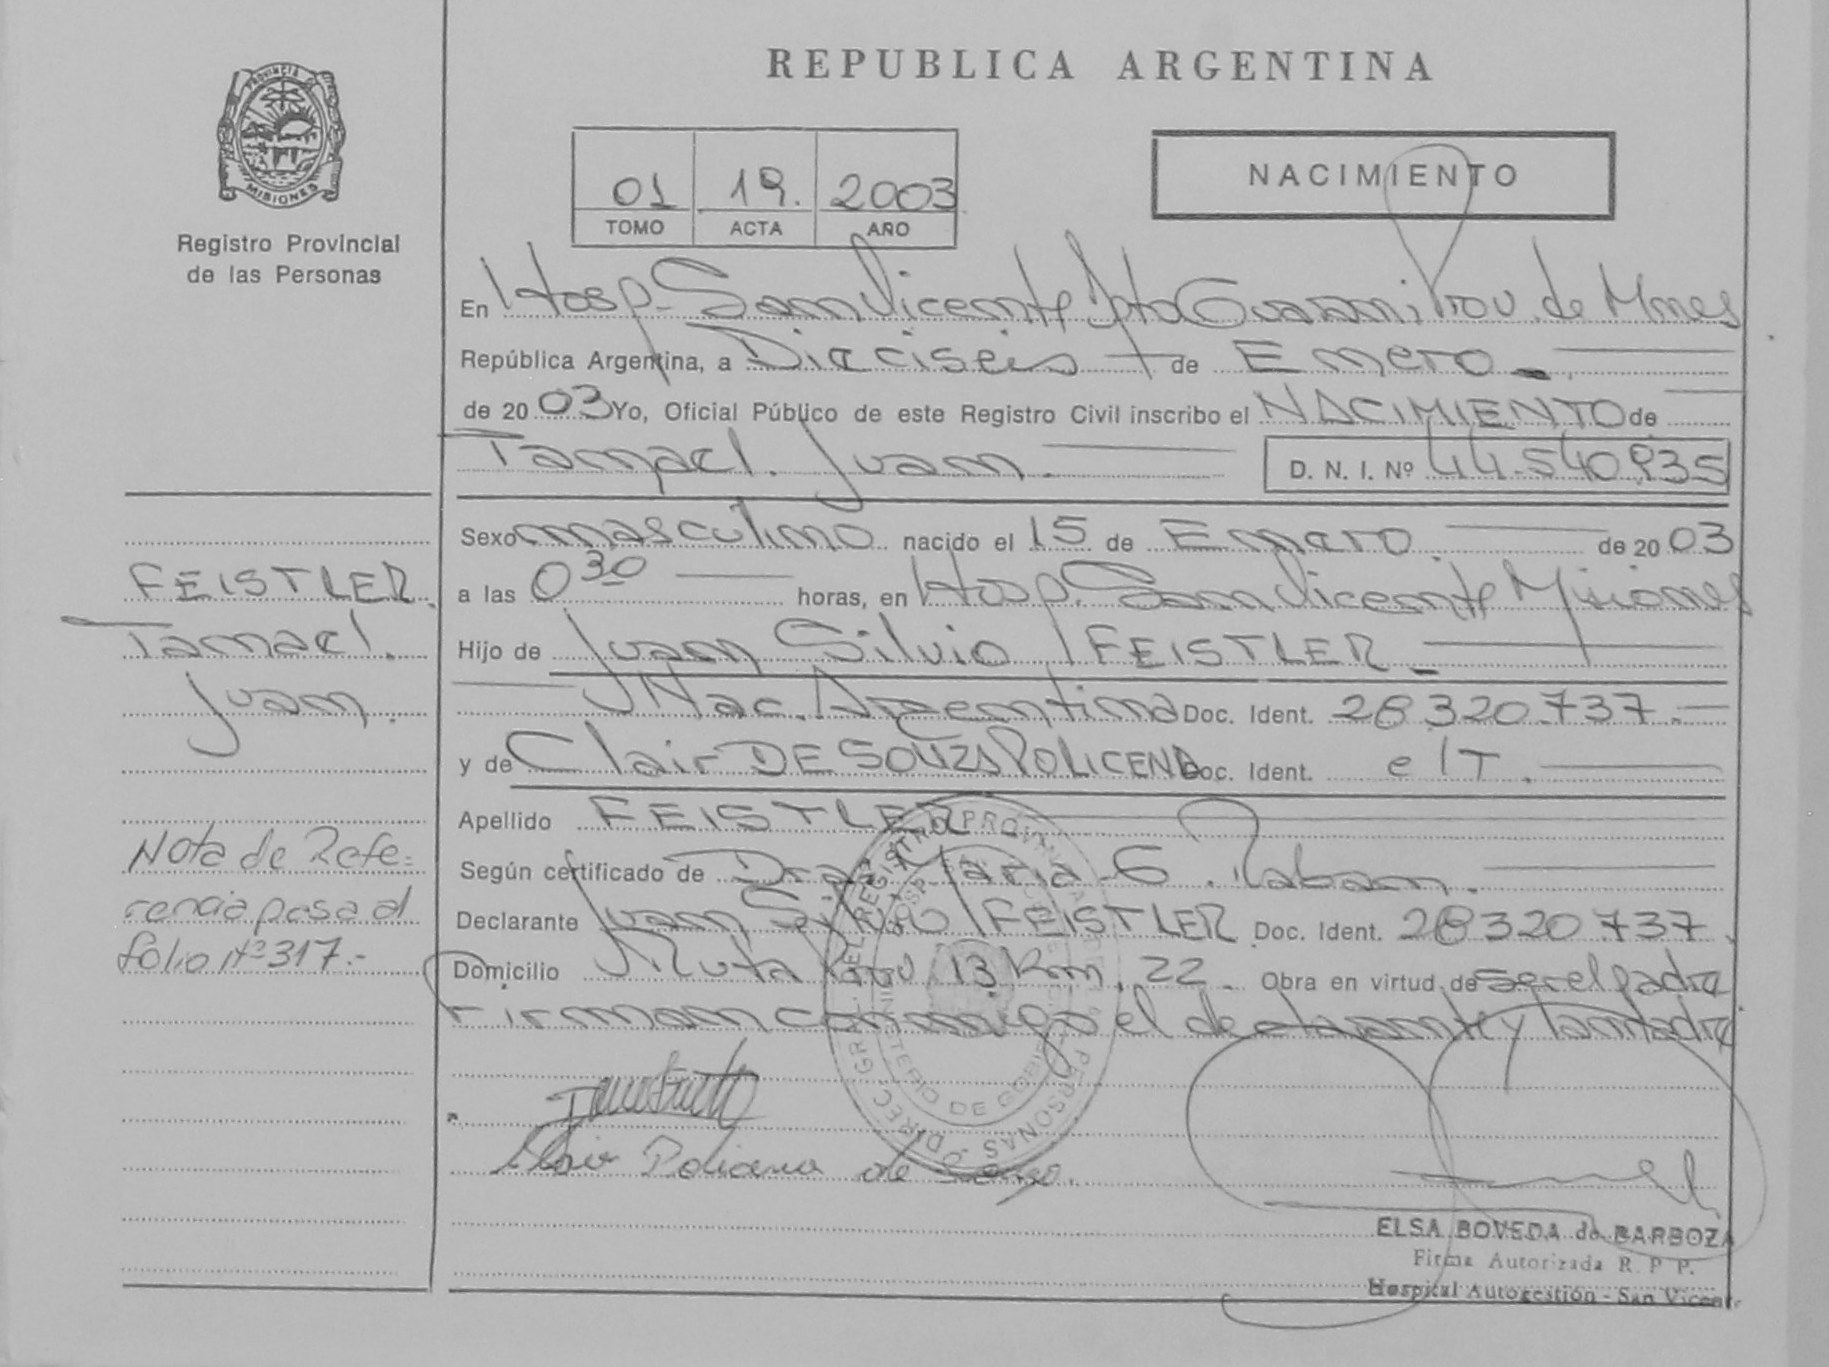 PROVINCIA
MISIONES
Registro Provincial
de las Personas
REPUBLICA ARGENTINA
01 19. 2003
TOMO ACTA AÑO
NACIMIENTO
En Hosp. San Vicente Dpto Guarani Prov. de Mnes
República Argentina, a Dieciseis de Enero
de 2003 Yo, Oficial Público de este Registro Civil inscribo el NACIMIENTO de
Tamael. Juan. D. N. I. Nº 44.540.935
Sexo masculino nacido el 15 de Enero de 2003
a las 0 30 horas, en Hosp. San Vicente Misiones
Hijo de Juan Silvio FEISTLER
Nac. Argentina Doc. Ident. 28.320.737.
y de Clair DE SOUZA POLICENA Doc. Ident. e/T.
Apellido FEISTLER
Según certificado de Dra. Maria G.
Declarante Juan Silvio FEISTLER Doc. Ident. 28320737.
Domicilio Ruta Prov. 13 Km. 22. Obra en virtud de ser el padre
Firman conmigo el declarante y la madre
Policena de
ELSA BOVEDA de BARBOZA
Firma Autorizada R. P. P.
Hospital Autogestión - San Vicente
FEISTLER.
Tamael.
Juan.
Nota de Refe-
rencia pasa al
folio Nº 317.-